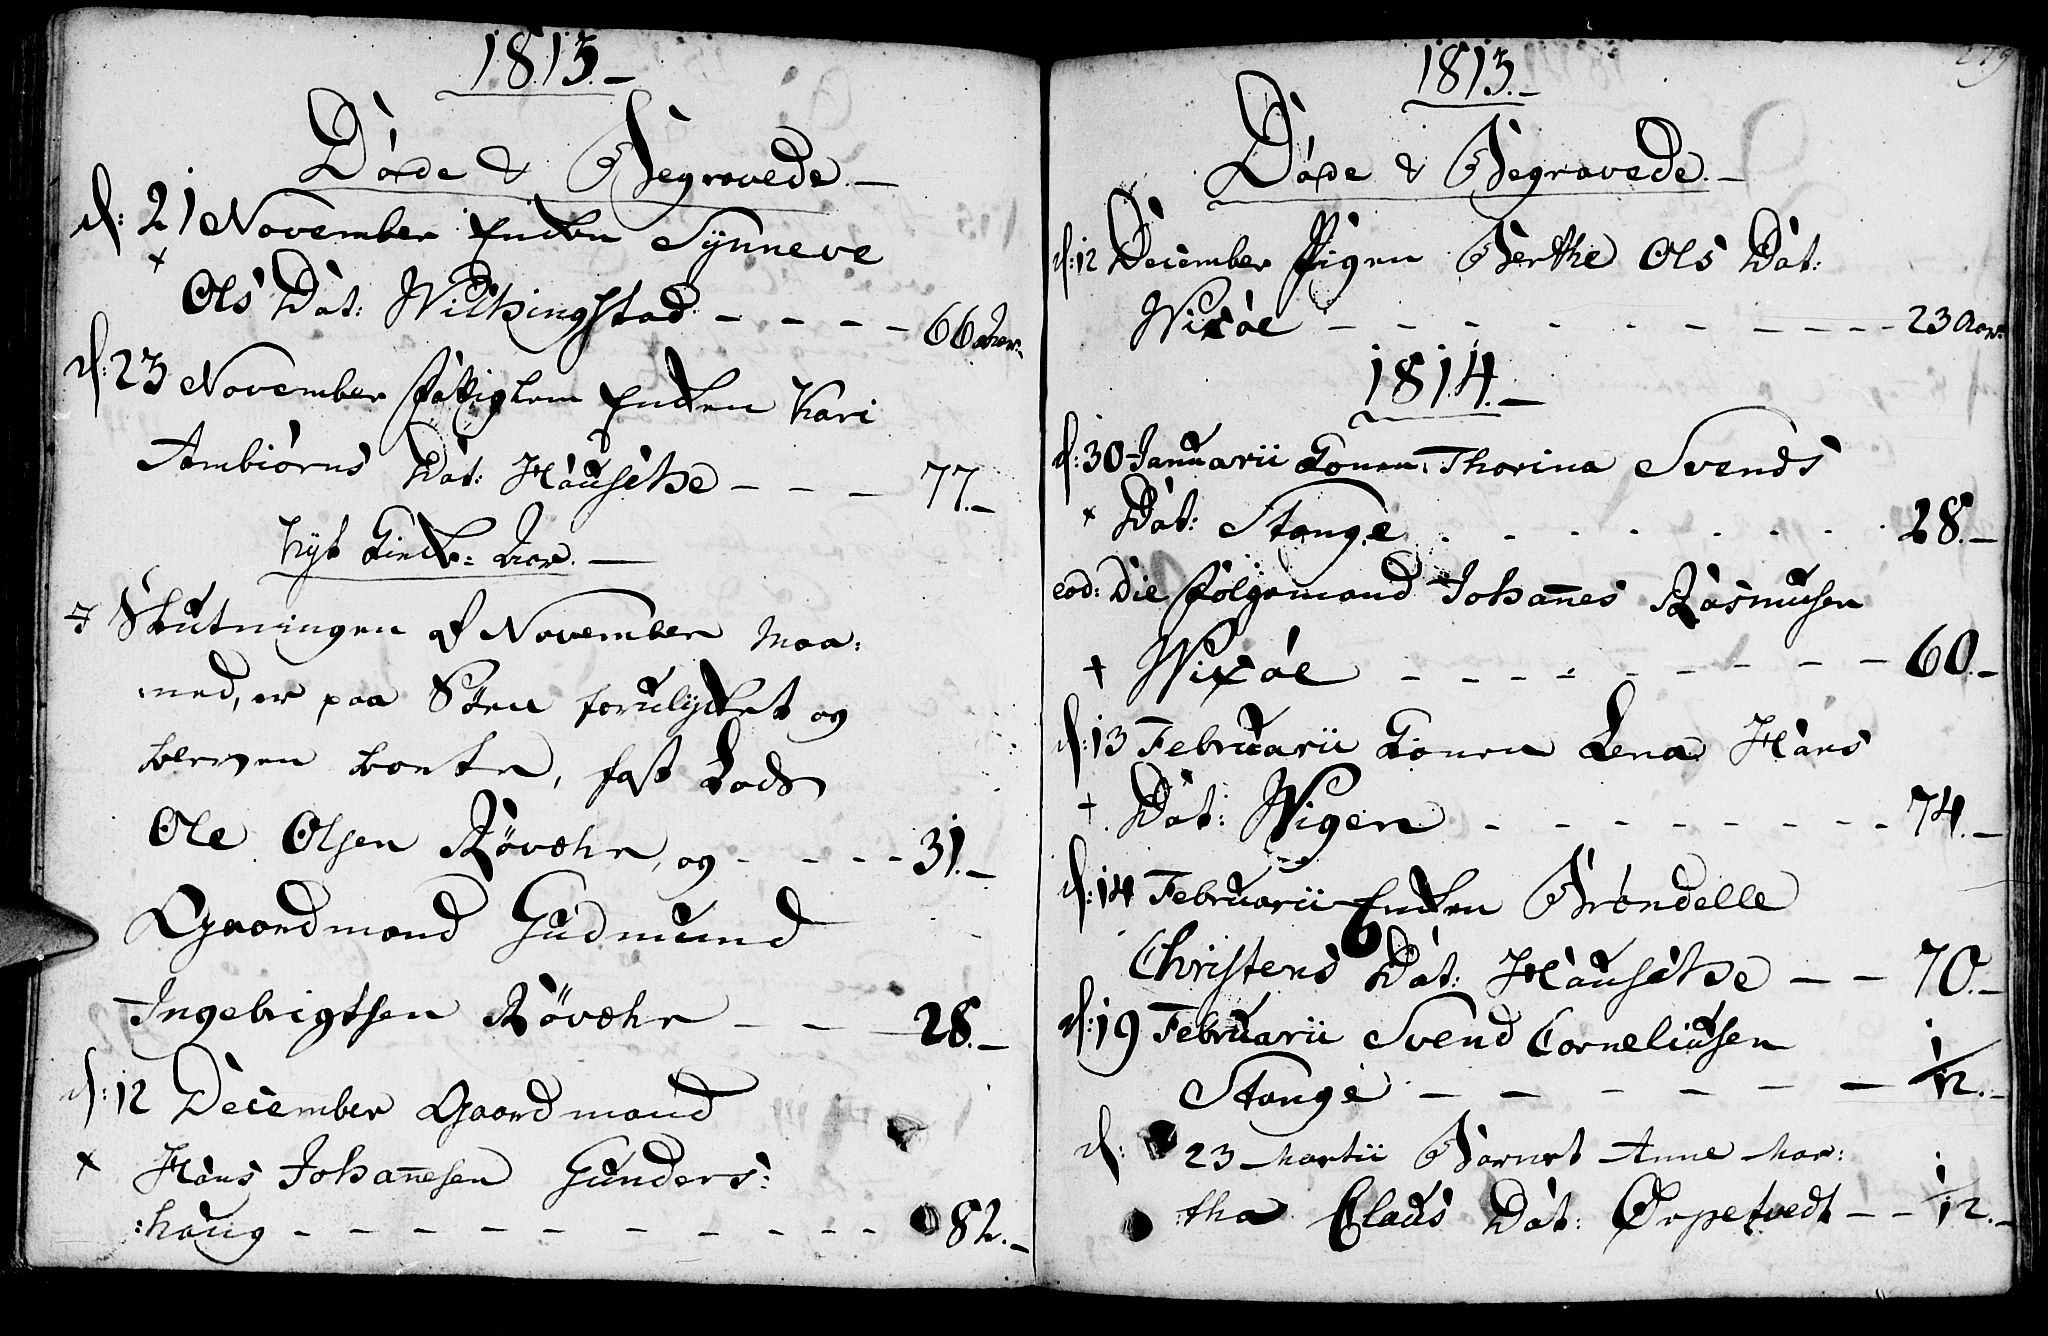 1813.-
Døde & Begravede.-
d: 21 November Enken Sÿnneve
+
Ols Dat: Wilkingstad - - - - 66 Aar.
d: 23 November Fattiglem Enken Kari
Ambiörns Dat: Hausche - - - 77.-
Nyt Kirke: Aar.-
I Slutningen af November Maa:
:ned, er paa Söen forulycket og
bleven borte, fast Lods
Ole Olsen Rövæhr, og - - - - 31.-
Gaardmand Gudmund
Ingebrigtsen Rövæhr - - - 28.-
d: 12 December Gaardmand
+ Hans Johan̅esen Gunders:
:haug - - - - - - - - - - 82.-
279
1813.-
Døde & Begravede.-
d: 12 December Pigen Berthe Ols Dat:
Wixøe - - - - - - - - - - - 23 Aar.
1814.-
d: 30 Januarii Konen Thorina Svends
+ Dat: Stange . - - - - - - 28.-
eod: Die Følgemand Johan̅es Rasmusen
+ Wixøe - - - - - - - - - 60.-
d: 13 Februarii Konen Lena Hans
+ Dat: Wigen - - - - - - - - - 74.-
d: 14 Februarii Enken Brøndelle
Christens Dat: Hausche - - 70.-
d: 19 Februarii Svend Corneliusen
Stange - - - - - - 1/12.-
d: 23 Martii Barnet Anne Mar:
:tha Claus Dat: Ørpetvedt - - 1/12.-